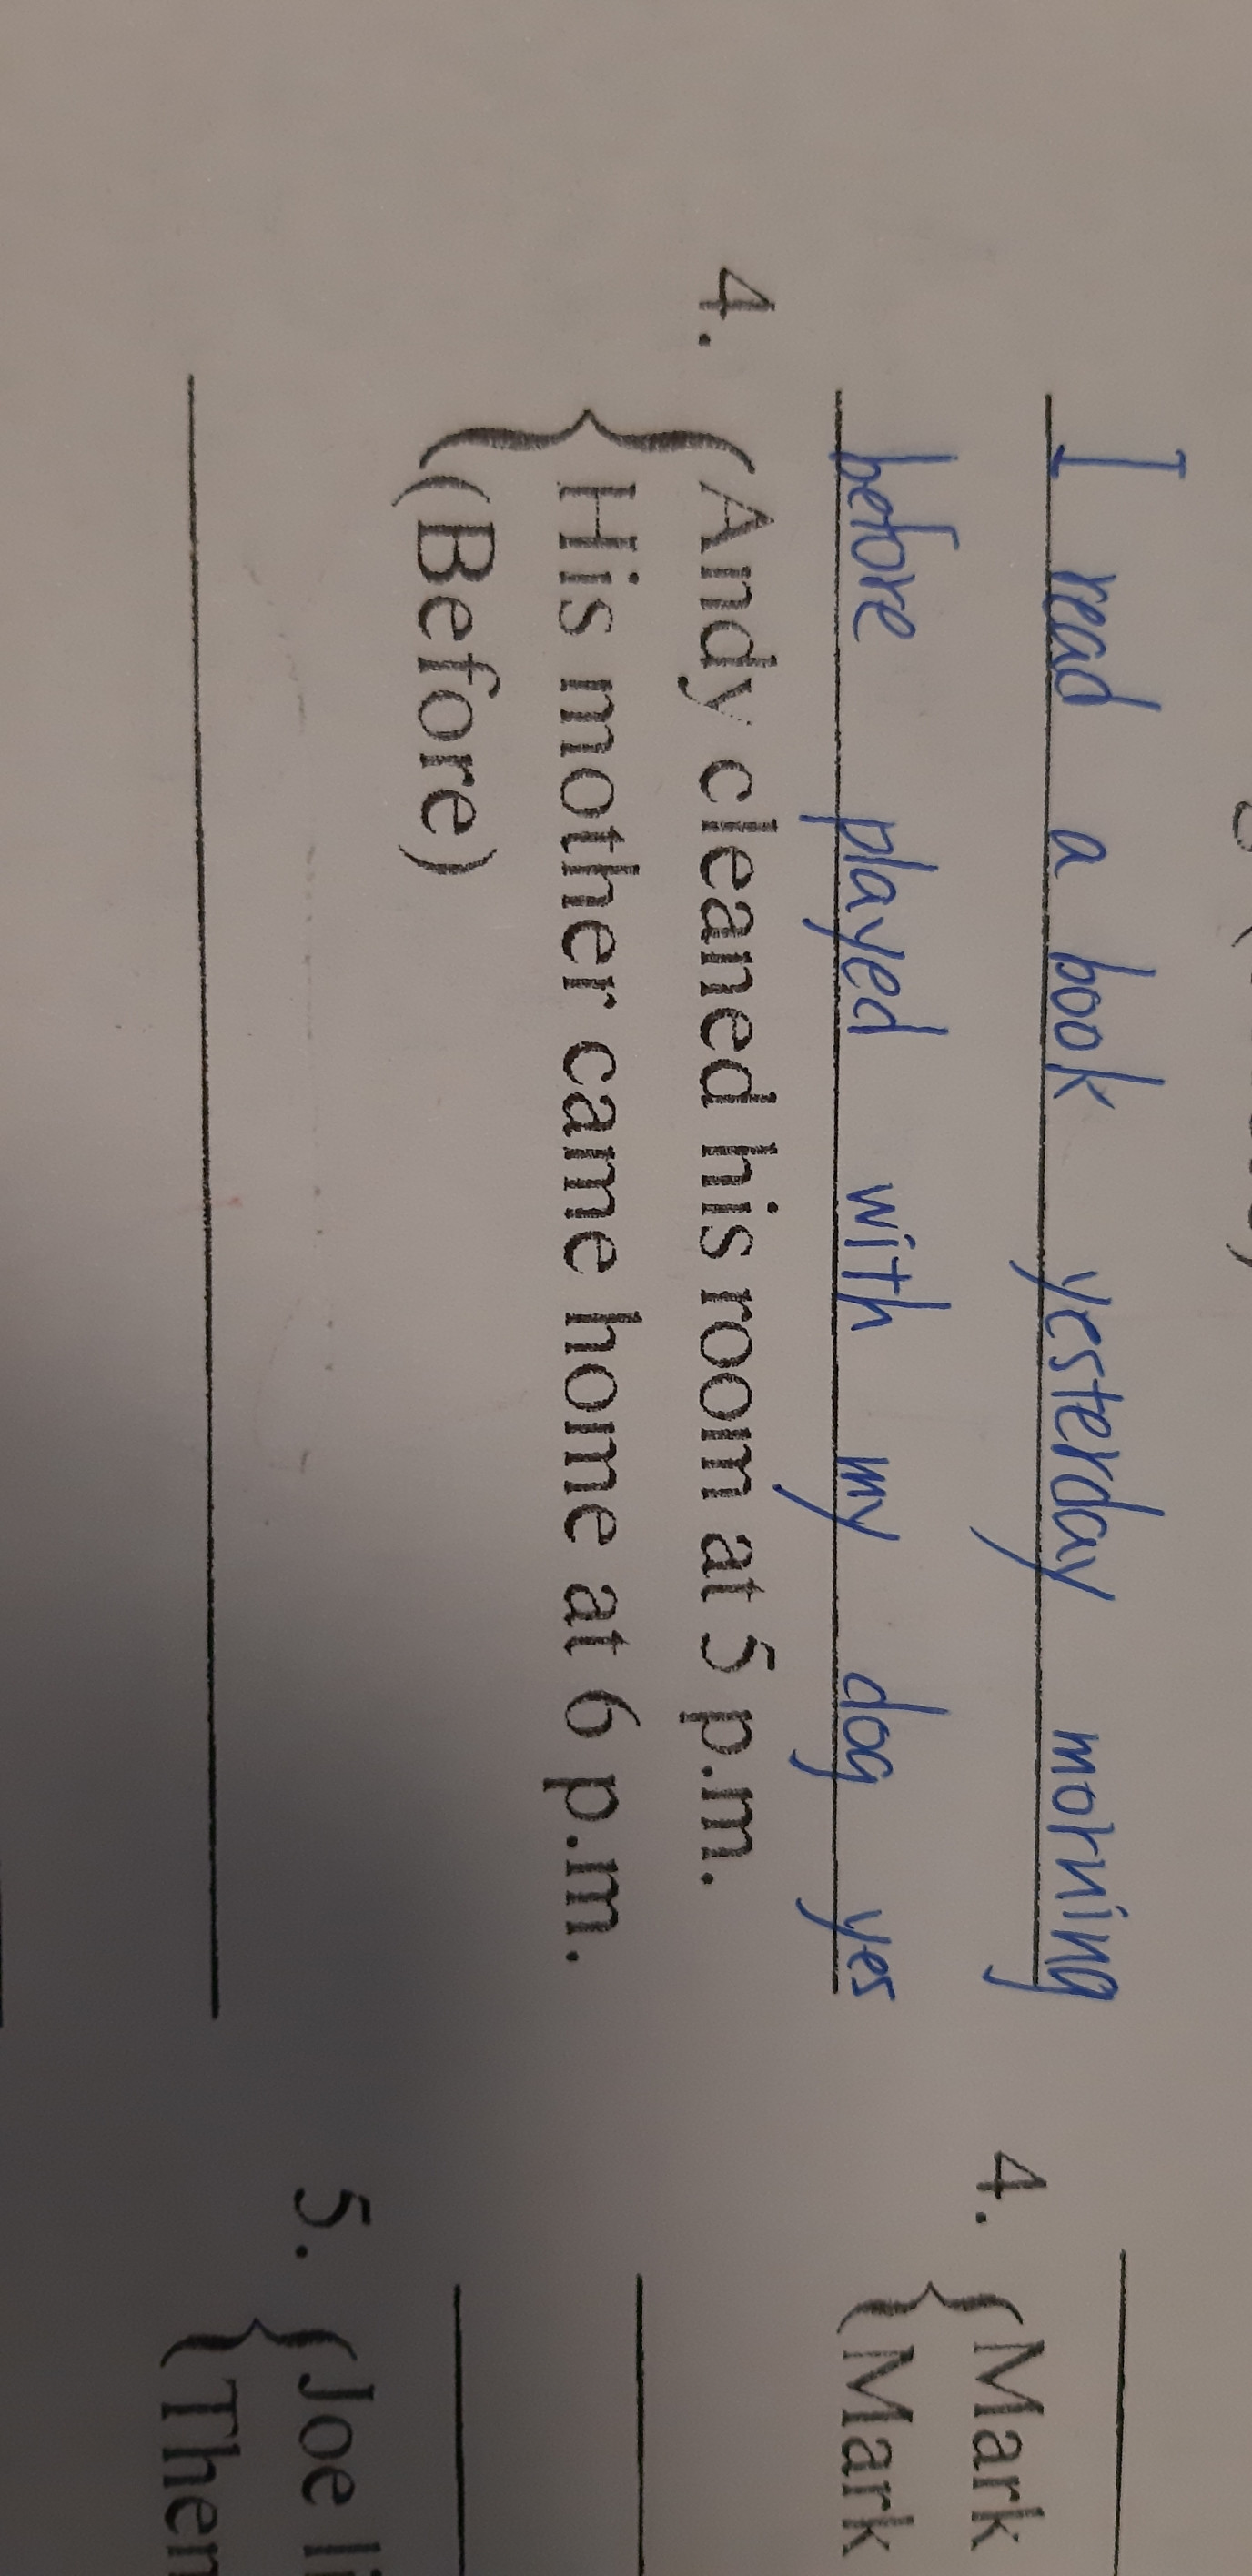 I read a book yesterday morning
before played with my dog yes
4. Andy cleaned his room at 5 p.m.
His mother came home at 6 p.m.
(Before)
4. Mark
Mark
5. Joe